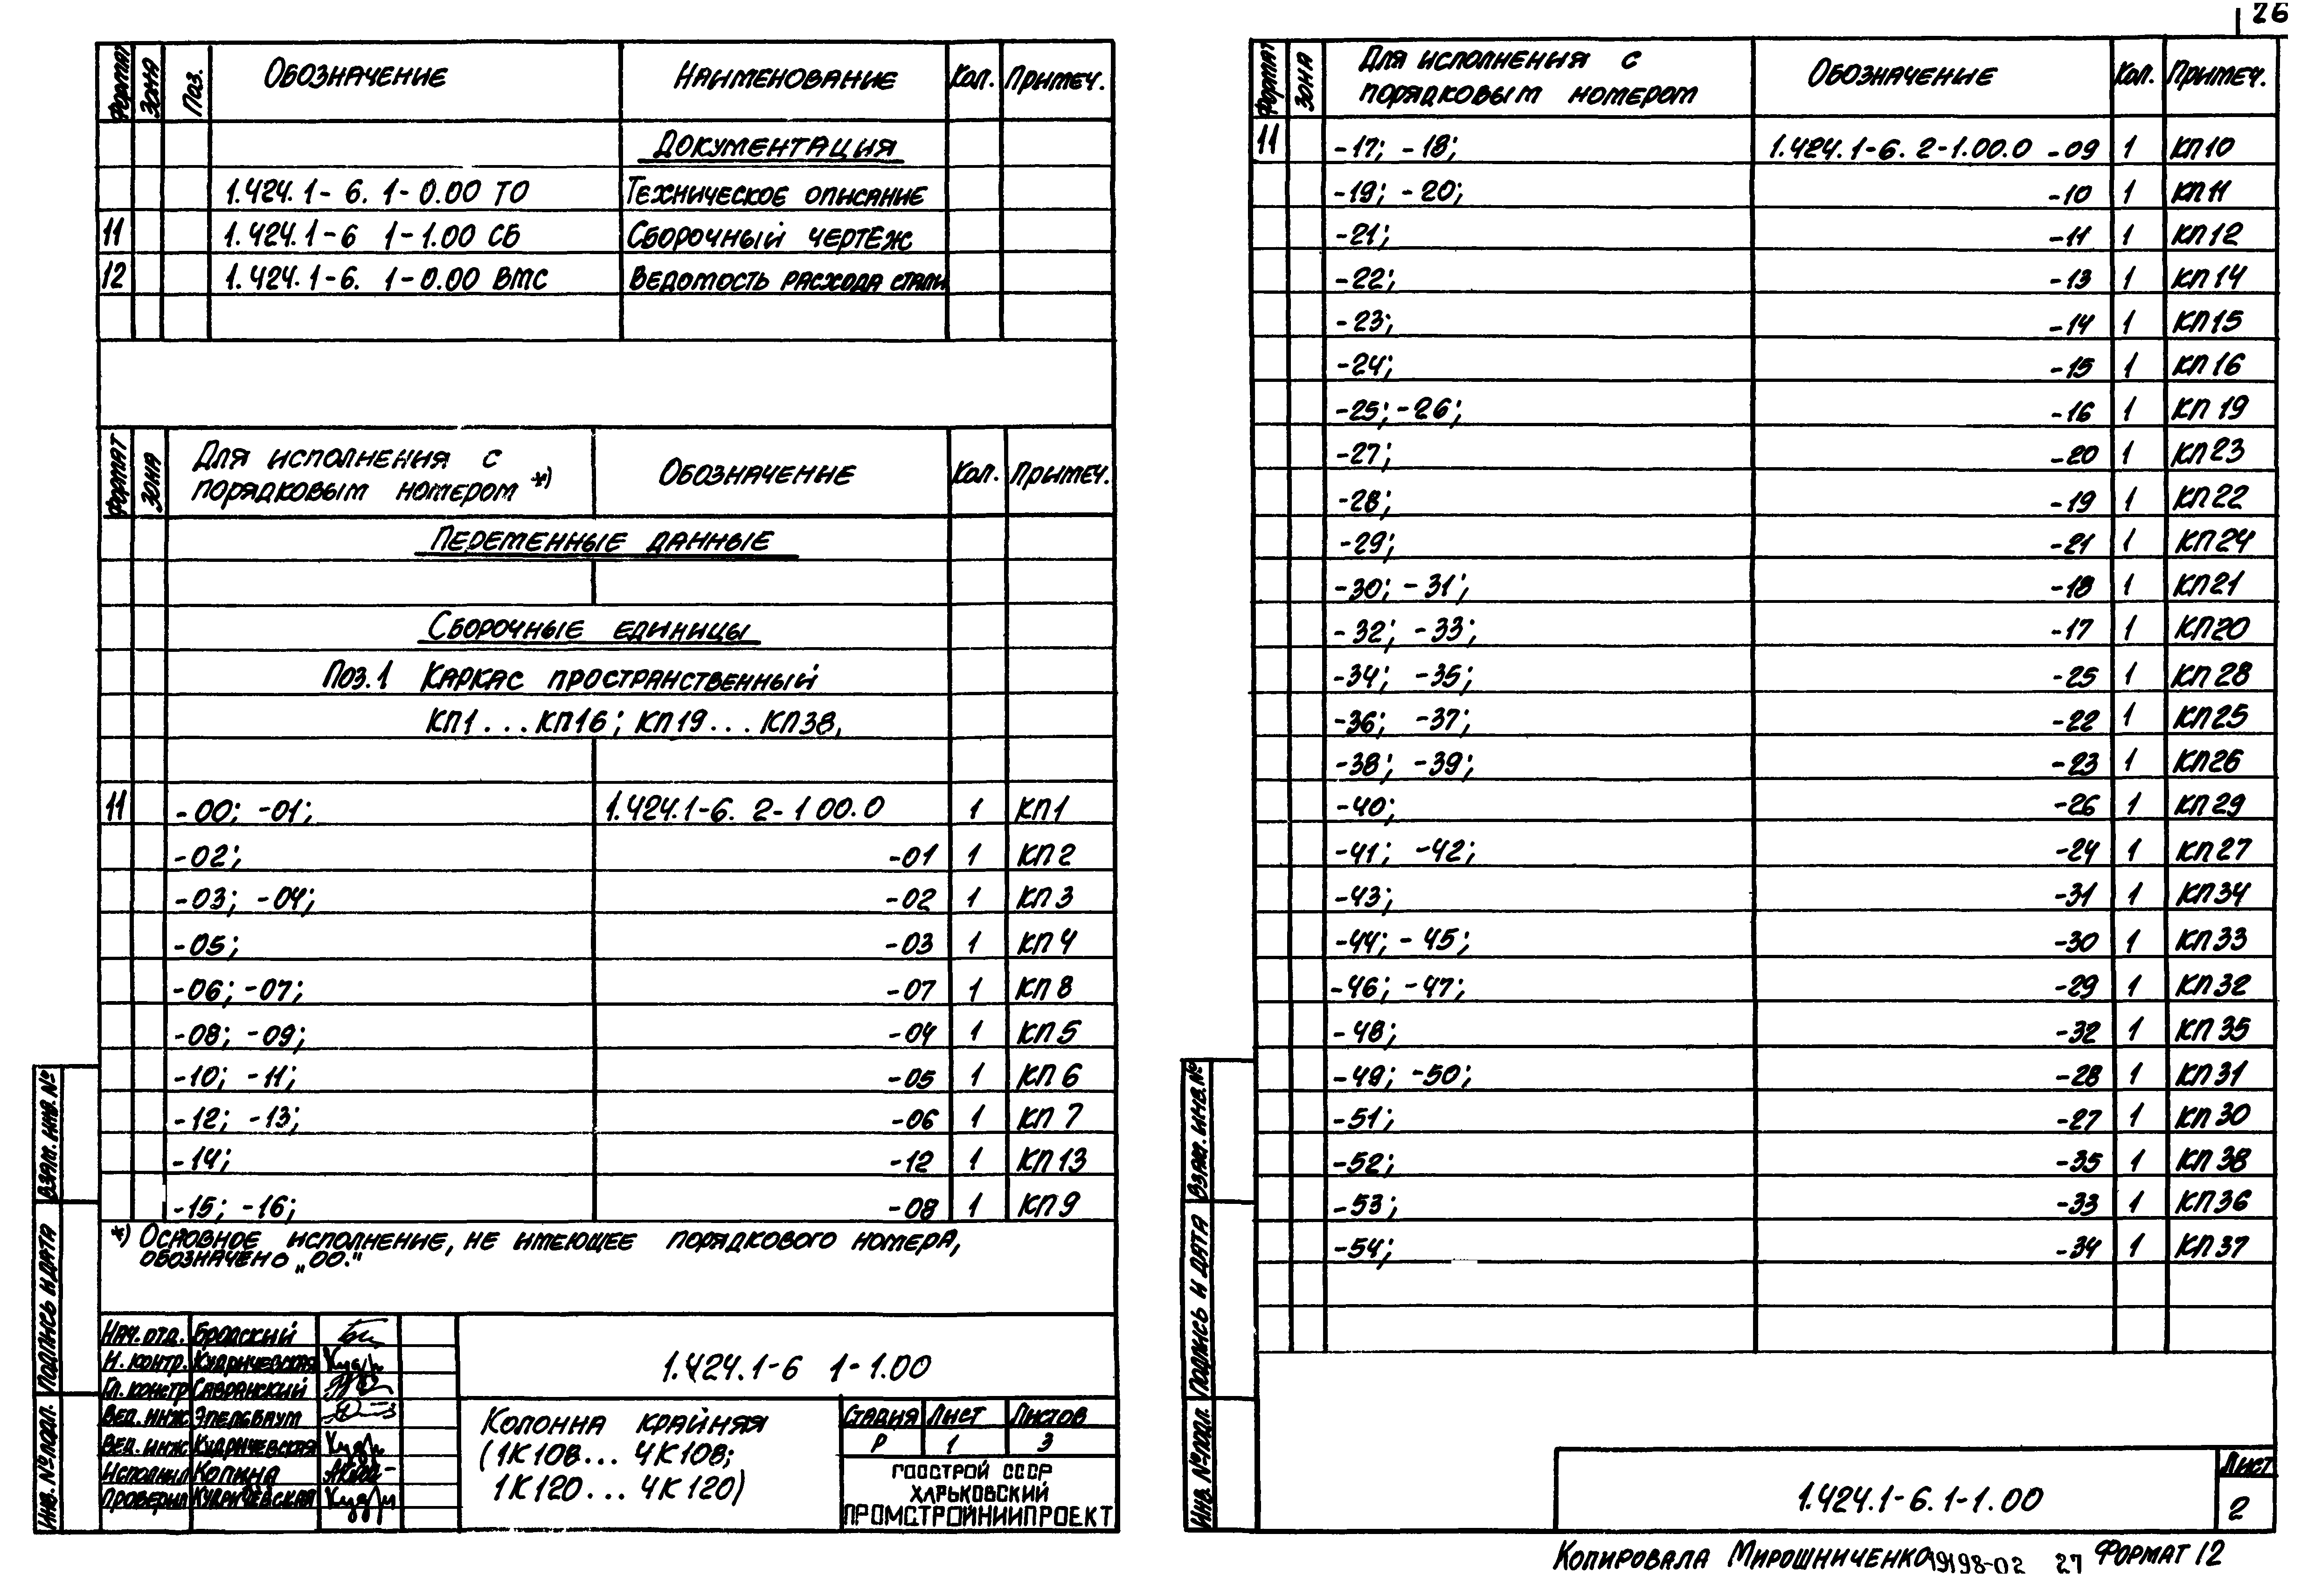 26
ФОРМАТ ЗОНА ПОЗ. ОБОЗНАЧЕНИЕ НАИМЕНОВАНИЕ КОЛ. ПРИМЕЧ.
ДОКУМЕНТАЦИЯ
1.424.1-6. 1-0.00 ТО ТЕХНИЧЕСКОЕ ОПИСАНИЕ
11 1.424.1-6 1-1.00 СБ СБОРОЧНЫЙ ЧЕРТЕЖ
12 1.424.1-6. 1-0.00 ВМС ВЕДОМОСТЬ РАСХОДА СТАЛИ
ФОРМАТ ЗОНА ДЛЯ ИСПОЛНЕНИЯ С ПОРЯДКОВЫМ НОМЕРОМ *) ОБОЗНАЧЕНИЕ КОЛ. ПРИМЕЧ.
ПЕРЕМЕННЫЕ ДАННЫЕ
СБОРОЧНЫЕ ЕДИНИЦЫ
ПОЗ.1 КАРКАС ПРОСТРАНСТВЕННЫЙ
КП1...КП16; КП19...КП38,
11 -00; -01; 1.424.1-6. 2-1 00.0 1 КП1
-02; -01 1 КП2
-03; -04; -02 1 КП3
-05; -03 1 КП4
-06; -07; -07 1 КП8
-08; -09; -04 1 КП5
-10; -11; -05 1 КП6
-12; -13; -06 1 КП7
-14; -12 1 КП13
-15; -16; -08 1 КП9
*) ОСНОВНОЕ ИСПОЛНЕНИЕ, НЕ ИМЕЮЩЕЕ ПОРЯДКОВОГО НОМЕРА,
ОБОЗНАЧЕНО „00."
НАЧ. ОТД. БРОДСКИЙ
Н. КОНТР. КУДРИЧЕВСКАЯ
ГЛ. КОНСТР САВРАНСКИЙ
ВЕД. ИНЖ ЭПЕЛЬБАУМ
ВЕД. ИНЖ КУДРИЧЕВСКАЯ
ИСПОЛНИЛ КОПИНА
ПРОВЕРИЛ КУДРИЧЕВСКАЯ
1.424.1-6 1-1.00
КОЛОННА КРАЙНЯЯ
(1К108... 4К108;
1К120... 4К120)
СТАДИЯ ЛИСТ ЛИСТОВ
Р 1 3
ГОССТРОЙ СССР
ХАРЬКОВСКИЙ
ПРОМСТРОЙНИИПРОЕКТ
ВЗАМ. ИНВ. №
ПОДПИСЬ И ДАТА
ИНВ. № ПОДЛ.
ФОРМАТ ЗОНА ДЛЯ ИСПОЛНЕНИЯ С ПОРЯДКОВЫМ НОМЕРОМ ОБОЗНАЧЕНИЕ КОЛ. ПРИМЕЧ.
11 -17; -18; 1.424.1-6. 2-1.00.0 -09 1 КП10
-19; -20; -10 1 КП11
-21; -11 1 КП12
-22; -13 1 КП14
-23; -14 1 КП15
-24; -15 1 КП16
-25; -26; -16 1 КП19
-27; -20 1 КП23
-28; -19 1 КП22
-29; -21 1 КП24
-30; -31; -18 1 КП21
-32; -33; -17 1 КП20
-34; -35; -25 1 КП28
-36; -37; -22 1 КП25
-38; -39; -23 1 КП26
-40; -26 1 КП29
-41; -42; -24 1 КП27
-43; -31 1 КП34
-44; -45; -30 1 КП33
-46; -47; -29 1 КП32
-48; -32 1 КП35
-49; -50; -28 1 КП31
-51; -27 1 КП30
-52; -35 1 КП38
-53; -33 1 КП36
-54; -34 1 КП37
ВЗАМ. ИНВ. №
ПОДПИСЬ И ДАТА
ИНВ. № ПОДЛ.
1.424.1-6. 1-1.00
ЛИСТ
2
КОПИРОВАЛА МИРОШНИЧЕНКО 19198-02 27 ФОРМАТ 12